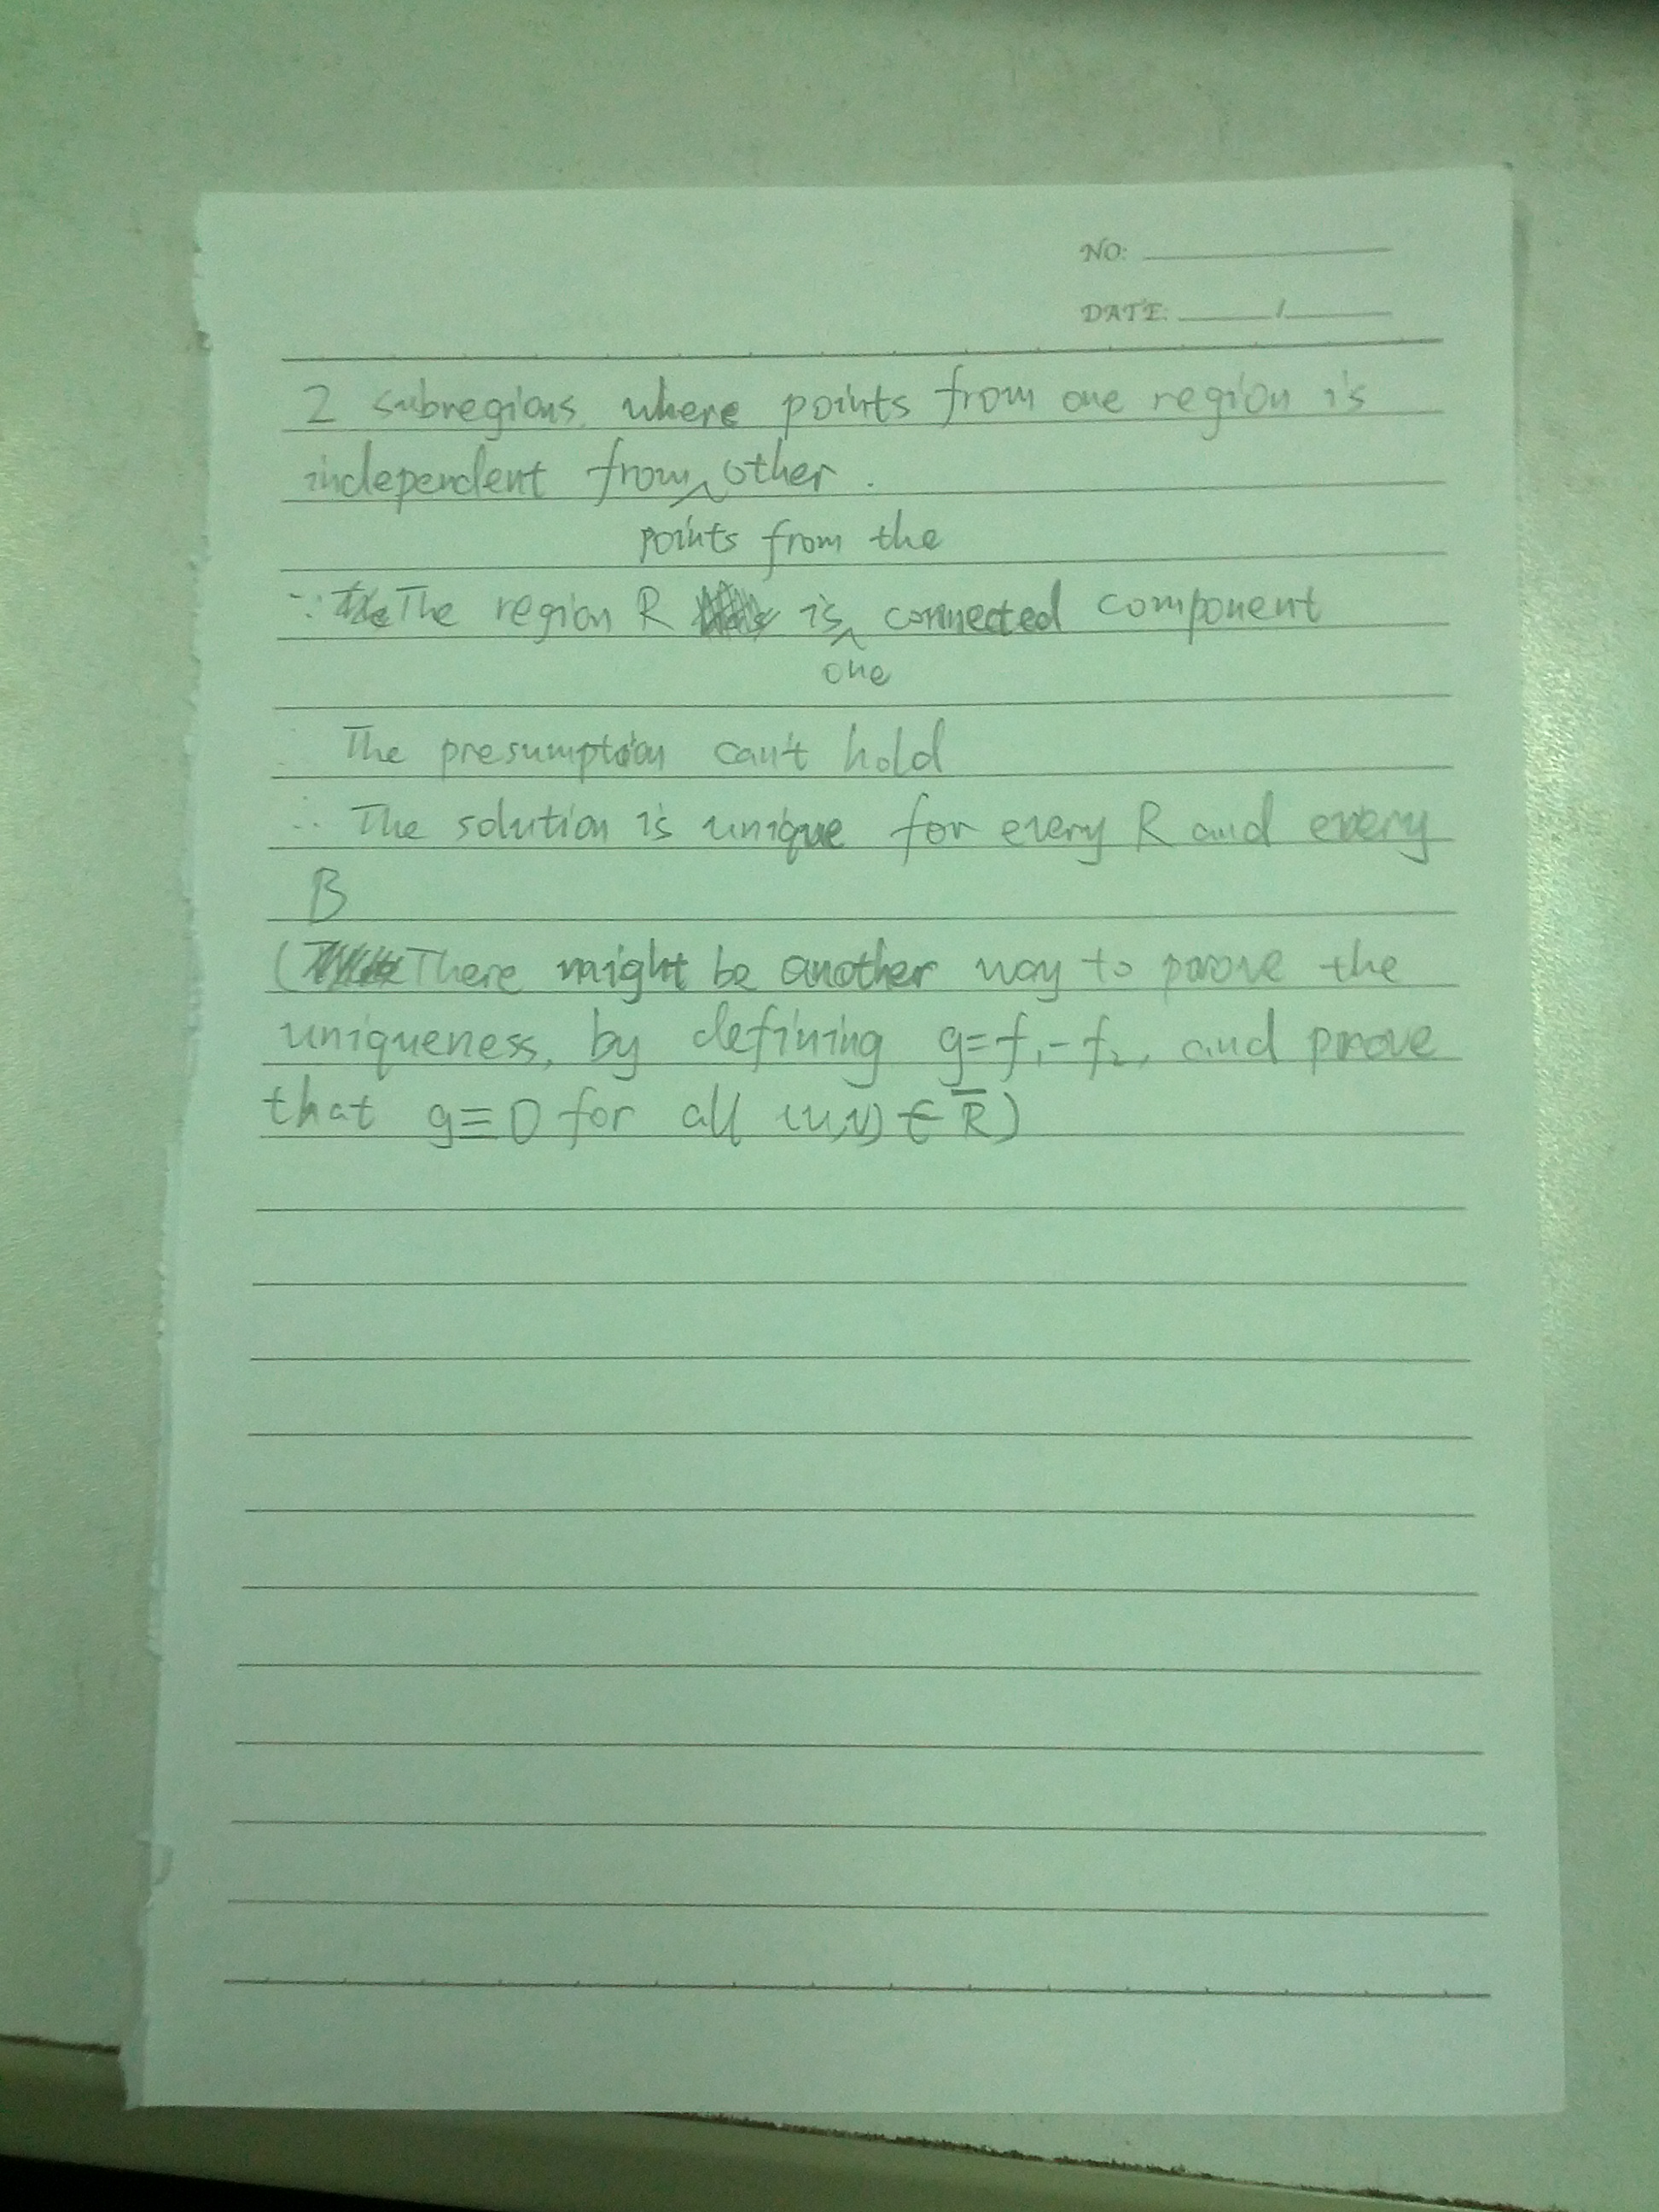 NO:
DATE: /
2 subregions, where points from one region is
independent from ^ other.
points from the
∵ The region R is ^ connected component
one
The presumption can't hold
∴ The solution is unique for every R and every
B
( There might be another way to prove the
uniqueness, by defining g=f₁-f₂, and prove
that g≡0 for all (u,v) ∈ R̅)